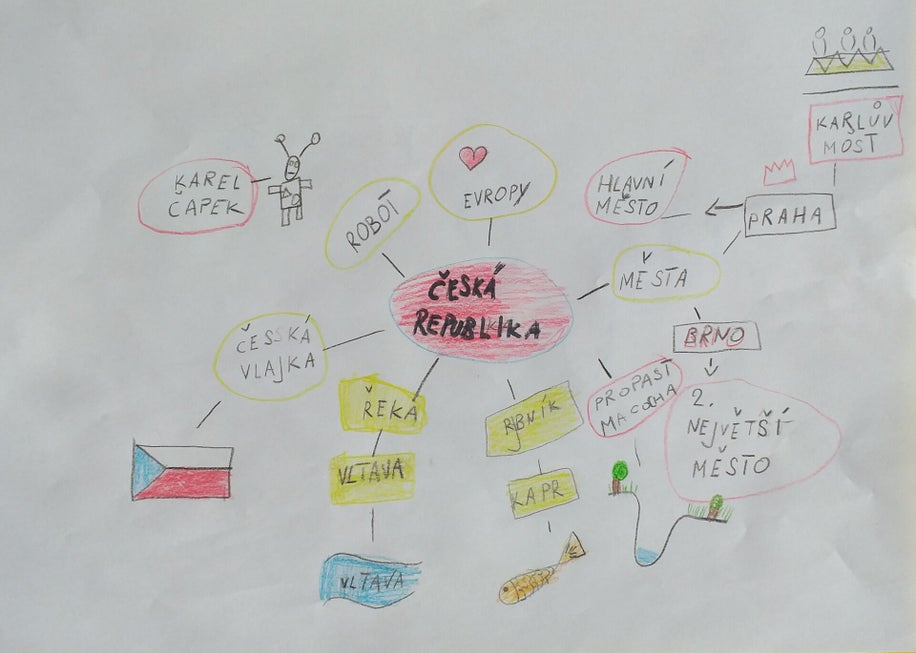 KARLŮV
MOST
EVROPY
HLAVNÍ
MĚSTO
PRAHA
KAREL
ČAPEK
ROBOT
MĚSTA
ČESKÁ
REPUBLIKA
BRNO
ČESSKÁ
VLAJKA
ŘEKA
RIBNÍK
PROPAST
MACOCHA
2.
NEJVĚTŠÍ
MĚSTO
VLTAVA
KAPR
VLTAVA